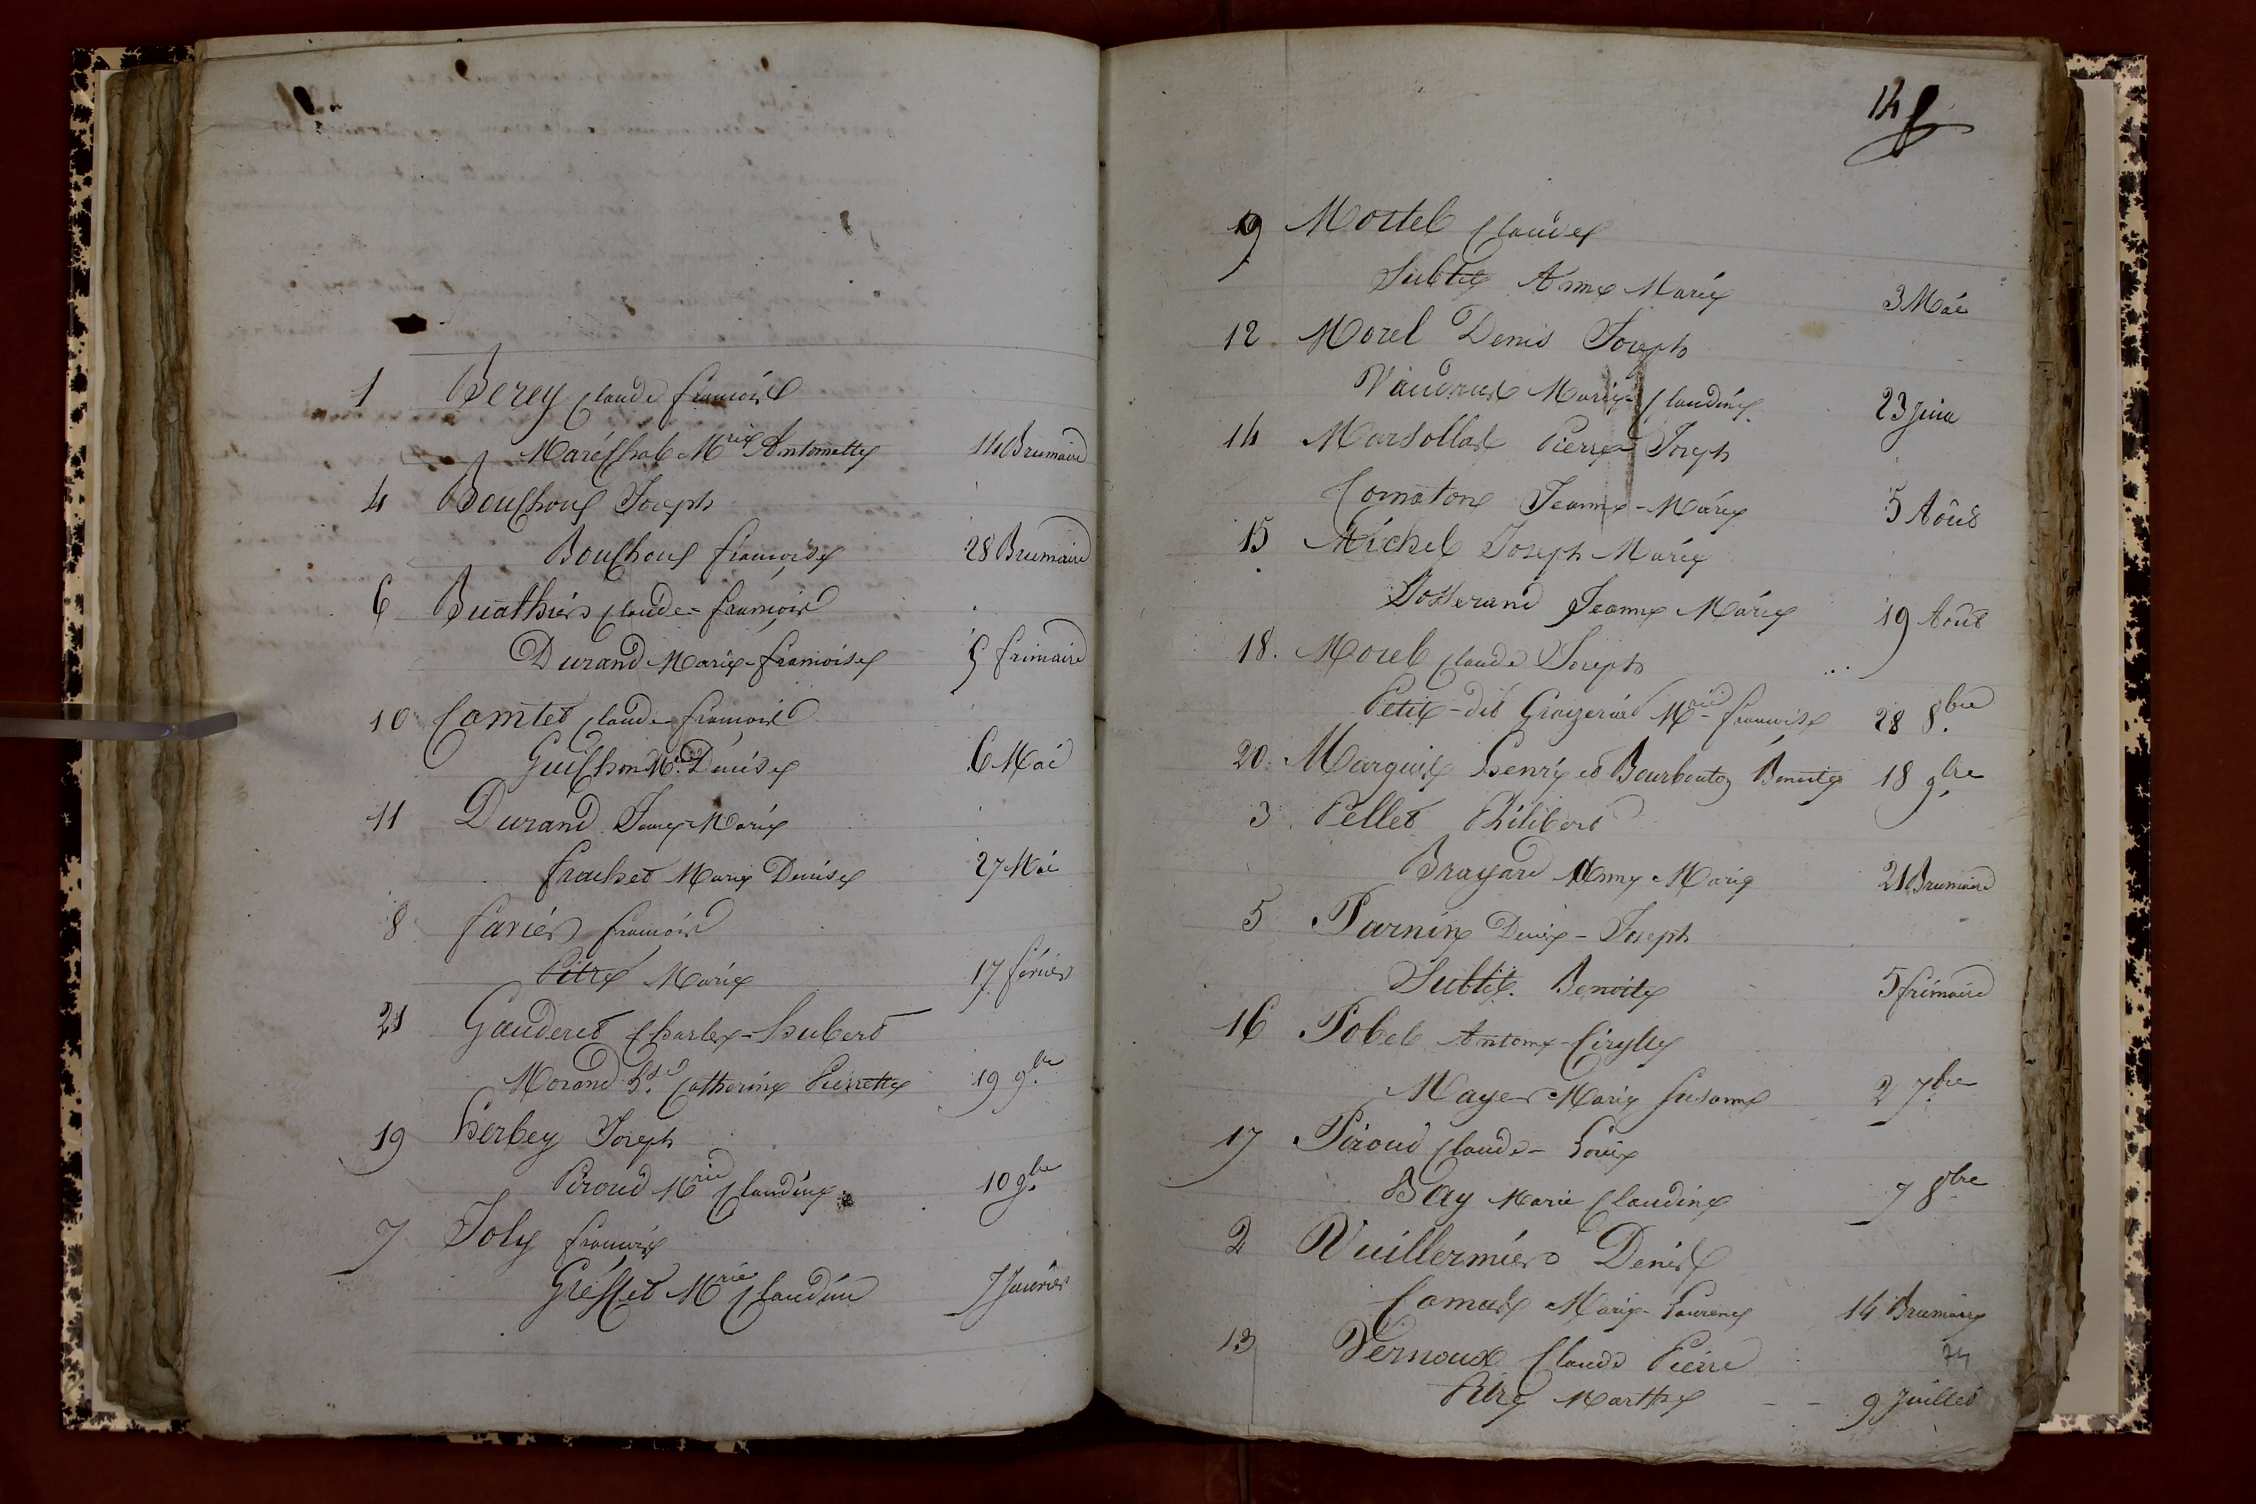 1 Berey Claude François
Maréchal M.rie Antoinette 14 Brumaire
4 Bouchoux Joseph
Bouchoux françoise 28 Brumaire
6 Buathier Claude-françois
Durand Marie-françoise 5 frimaire
10 Comtet Claude françois
Guichon M.rie Denise 6 Mai
11 Durand Marie
frachet Marie Denise 27 Mai
8 favier françois
Pitre Marie 17 février
21 Gauderet Charles-hubert
Morand Catherine Pierrette 19 9.bre
19 herbey Joseph
Piroud M.rie Claudine 10 9.bre
7 Joly françois
Gresset M.rie Claudine 7 Janvier
14
9 Mortel Claude
Subtil Anne Marie 3 Mai
12 Morel Denis Joseph
Marie-Claudine 23 Juin
14 Marsollat Pierre Joseph
Jeanne-Marie 5 Août
15 Michel Joseph Marie
Josserand Jeanne Marie 19 Août
18. Morel Claude Joseph
Petit-dit M.rie-françoise 28 8.bre
20. Marquis henry et Bourbouton Benoite 18 9.bre
3 Pellet Philibert
Brayard Anne Marie 21 Brumaire
5 Parnin Denis-Joseph
Subtil. Benoite 5 frimaire
16 Pobel Antoine-Cirylle
Mayer Marie Susanne 2 7.bre
17 Piroud Claude-Louis
Bay Marie Claudine 7 8.bre
2 Vuillermier Denis
Comas Marie-Laurence 14 Brumaire
13 Vernoux Claude Pierre
74
Pitre Marthe - - 9 Juillet